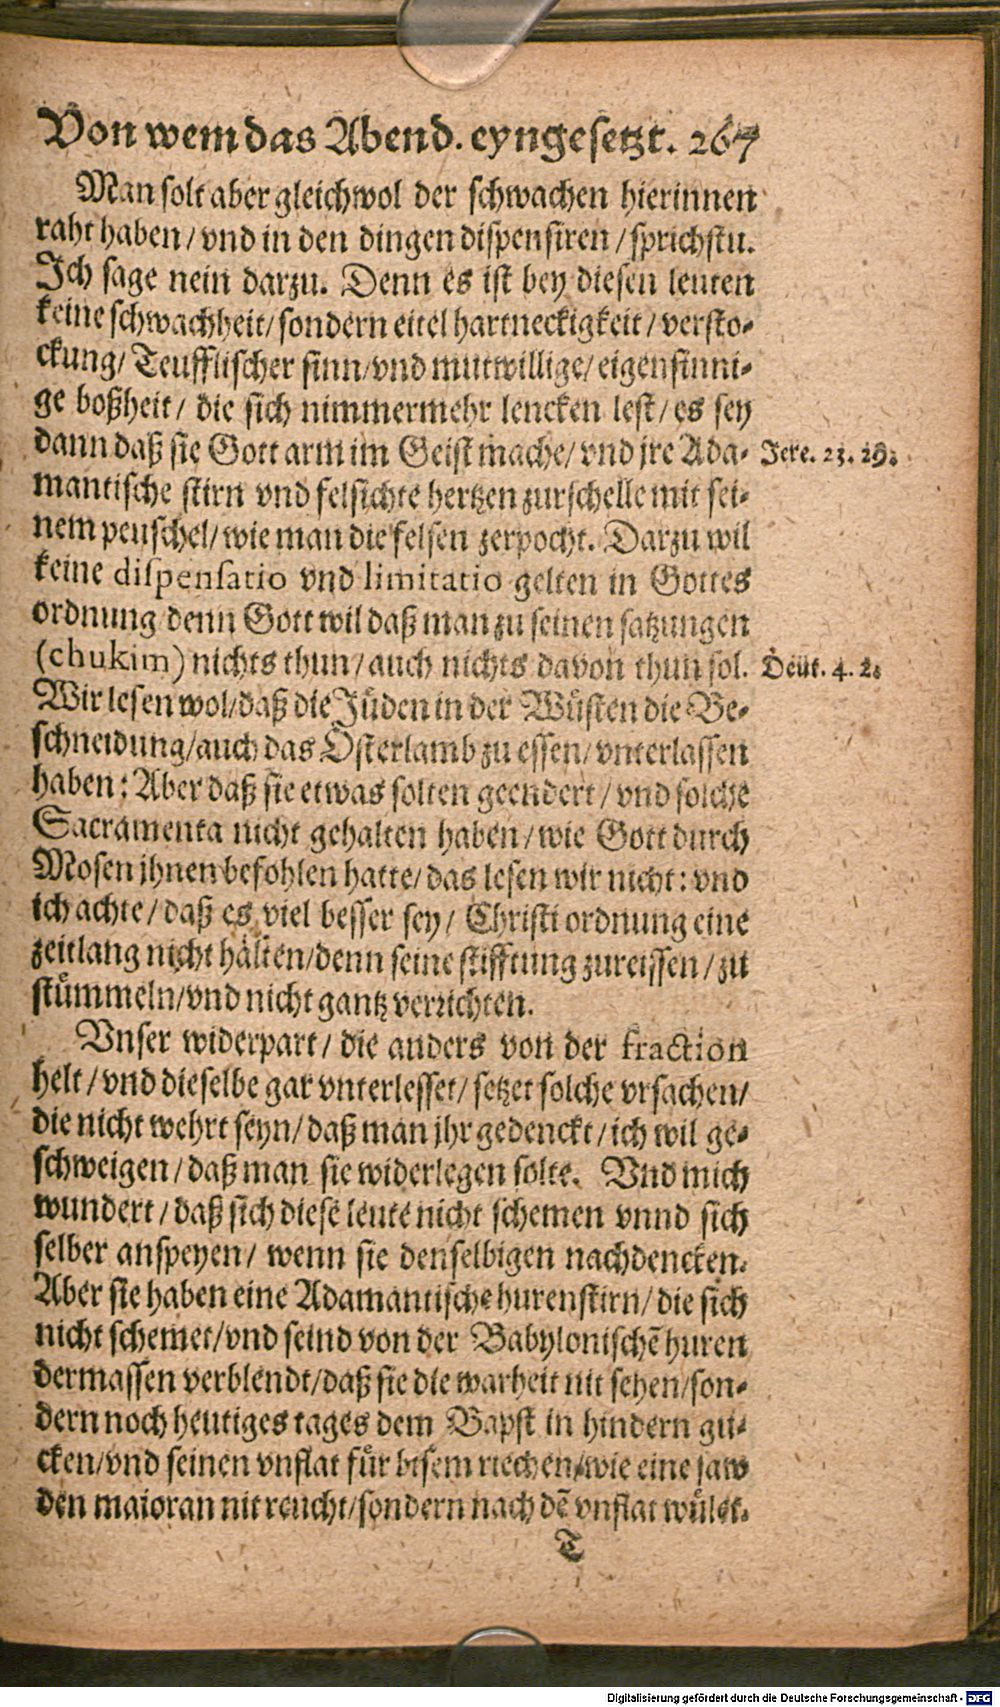 Von wem das Abend. eyngesetzt. 267
Man solt aber gleichwol der schwachen hierinnen
raht haben / vnd in den dingen dispensiren / sprichstu.
Ich sage nein darzu. Denn es ist bey diesen leuten
keine schwachheit / sondern eitel hartneckigkeit / versto-
ckung / Teufflischer sinn / vnd mutwillige / eigensinni-
ge boßheit / die sich nimmermehr lencken lest / es sey
dann daß sie Gott arm im Geist mache / vnd jre Ada- Jere. 23. 29.
mantische stirn vnd felsichte hertzen zurschelle mit sei-
nem peuschel / wie man die felsen zerpocht. Darzu wil
keine dispensatio vnd limitatio gelten in Gottes
ordnung / denn Gott wil daß man zu seinen satzungen
(chukim) nichts thun / auch nichts davon thun sol. Deut. 4. 2.
Wir lesen wol / daß die Jüden in der Wüsten die Be-
schneidung / auch das Osterlamb zu essen / vnterlassen
haben: Aber daß sie etwas solten geendert / vnd solche
Sacramenta nicht gehalten haben / wie Gott durch
Mosen jhnen befohlen hatte / das lesen wir nicht: vnd
ich achte / daß es viel besser sey / Christi ordnung eine
zeitlang nicht halten / denn seine stifftung zureissen / zu
stümmeln / vnd nicht gantz verrichten.
Vnser widerpart / die anders von der fraction
helt / vnd dieselbe gar vnterlesset / setzet solche vrsachen /
die nicht wehrt seyn / daß man jhr gedenckt / ich wil ge-
schweigen / daß man sie widerlegen solte. Vnd mich
wundert / daß sich diese leute nicht schemen vnnd sich
selber anspeyen / wenn sie denselbigen nachdencken.
Aber sie haben eine Adamantische hurenstirn / die sich
nicht schemet / vnd seind von der Babylonischē huren
dermassen verblendt / daß sie die warheit nit sehen / son-
dern noch heutiges tages dem Bapst in hindern gu-
cken / vnd seinen vnflat für bisem riechen / wie eine saw
den maioran nit reucht / sondern nach dē vnflat wület.
T
Digitalisierung gefördert durch die Deutsche Forschungsgemeinschaft - DFG